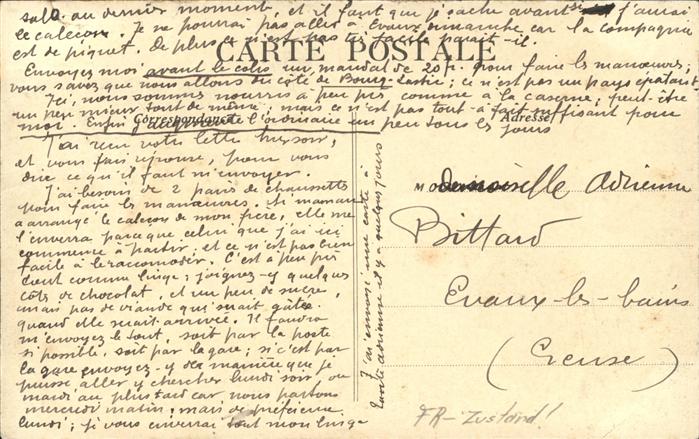 sale au dernier moment, et il faut que je sache avant si j'aurai
le caleçon. Je ne pourrai pas aller à Evaux dimanche car la compagnie
est de piquet. De plus ce n'est pas très facile paraît-il.
CARTE POSTALE
Envoyez moi avant le colis un mandat de 20f pour faire les manœuvres;
vous savez que nous allons du côté de Bourg-Lastic; ce n'est pas un pays épatant.
Ici, nous sommes nourris à peu près comme à la caserne; peut-être
un peu mieux tout de même; mais ce n'est pas tout-à-fait suffisant pour
moi. Enfin j'augmente l'ordinaire un peu tous les jours
Correspondance
Adresse
J'ai reçu votre lettre hier soir,
et vous fais réponse, pour vous
dire ce qu'il faut m'envoyer.
J'ai besoin de 2 paires de chaussettes
pour faire les manœuvres. Si maman
a arrangé le caleçon de mon frère, elle me
l'enverra parce que celui que j'ai ici
commence à partir, et ce n'est pas bien
facile à le raccomoder. C'est à peu près
tout comme linge; joignez-y quelques
côts de chocolat, et un peu de sucre,
mais pas de viande qui serait gâtée
quand elle serait arrivée. Il faudra
m'envoyez le tout, soit par la poste
si possible, soit par la gare; si c'est par
la gare envoyez-y de manière que je
puisse aller y chercher lundi soir, ou
mardi au plus tard car nous partons
mercredi matin; mais de préférence
lundi; je vous enverrai tout mon linge
J'ai envoyé une carte à
tante adrienne il y a quelques jours
Mademoiselle Adrienne
Bittard
Evaux-les-bains
(Creuse)
FR-Zustand!